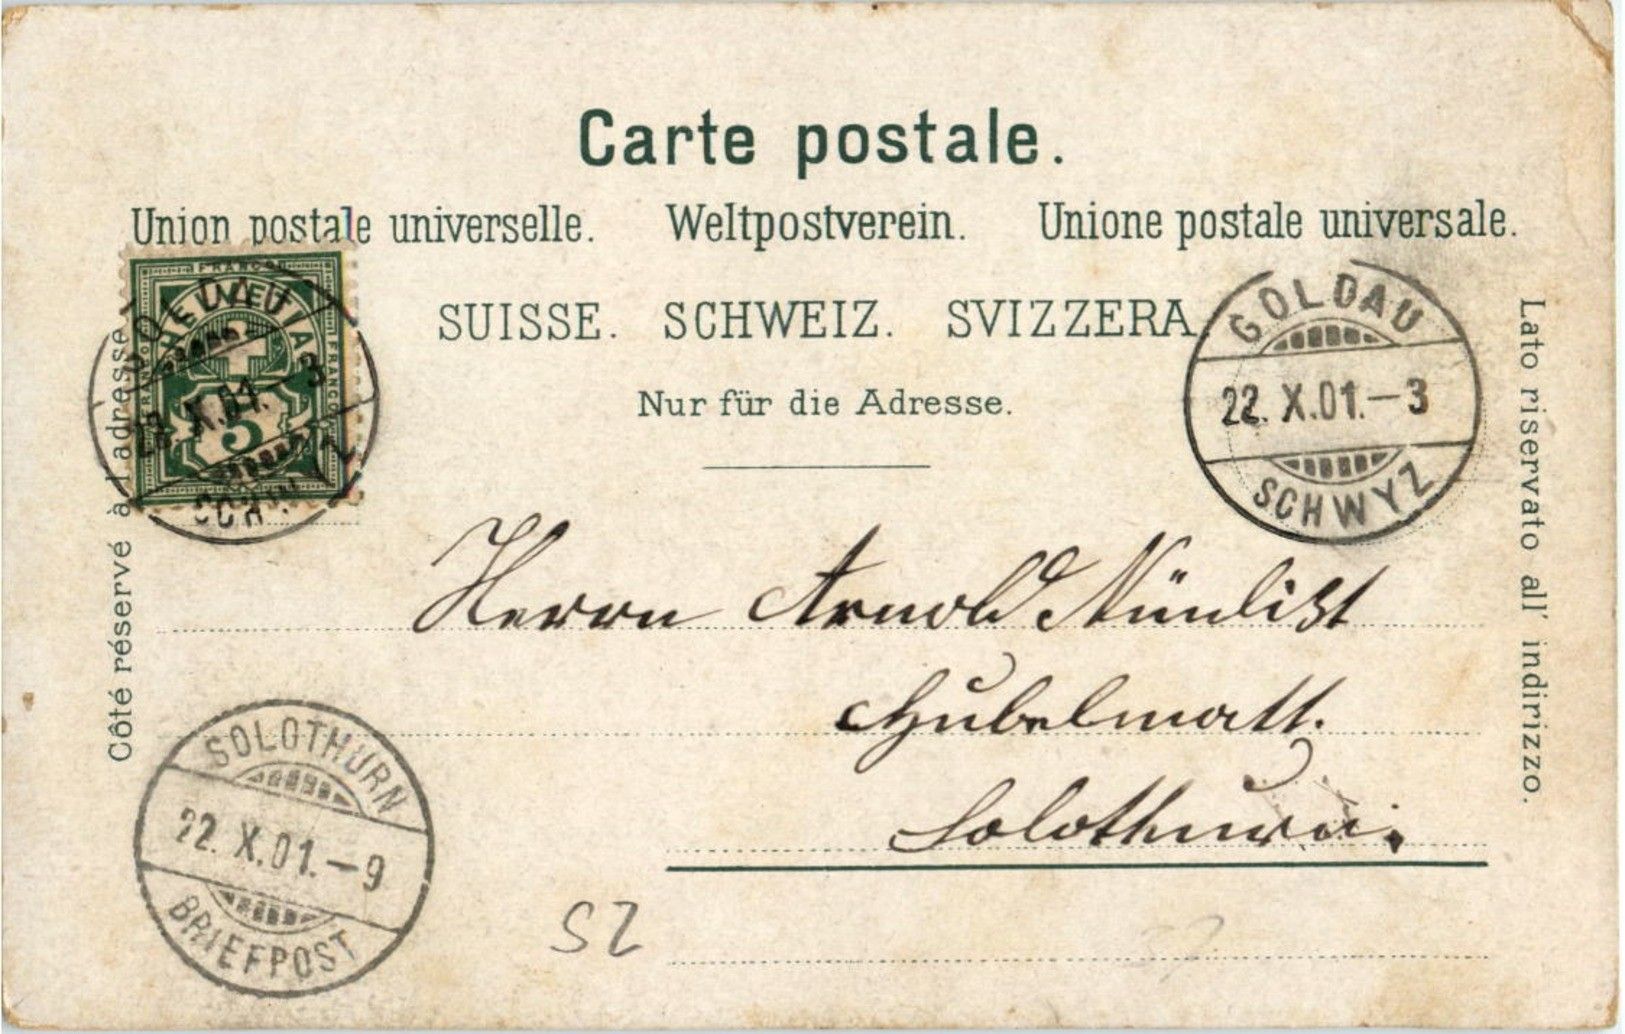 Carte postale.
Union postale universelle. Weltpostverein. Unione postale universale.
SUISSE. SCHWEIZ. SVIZZERA.
Nur für die Adresse.
Côté réservé à l'adresse.
Lato riservato all' indirizzo.
FRANCO
HELVETIA
FRANCO
FRANCO
5
GOLDAU
22. X.01.-3
SCHWYZ
GOLDAU
22. X.01.-3
SCHWYZ
Herrn Arnold Nünlist
Hubelmatt.
Solothurn.
SOLOTHURN
22. X.01.-9
BRIEFPOST
SZ